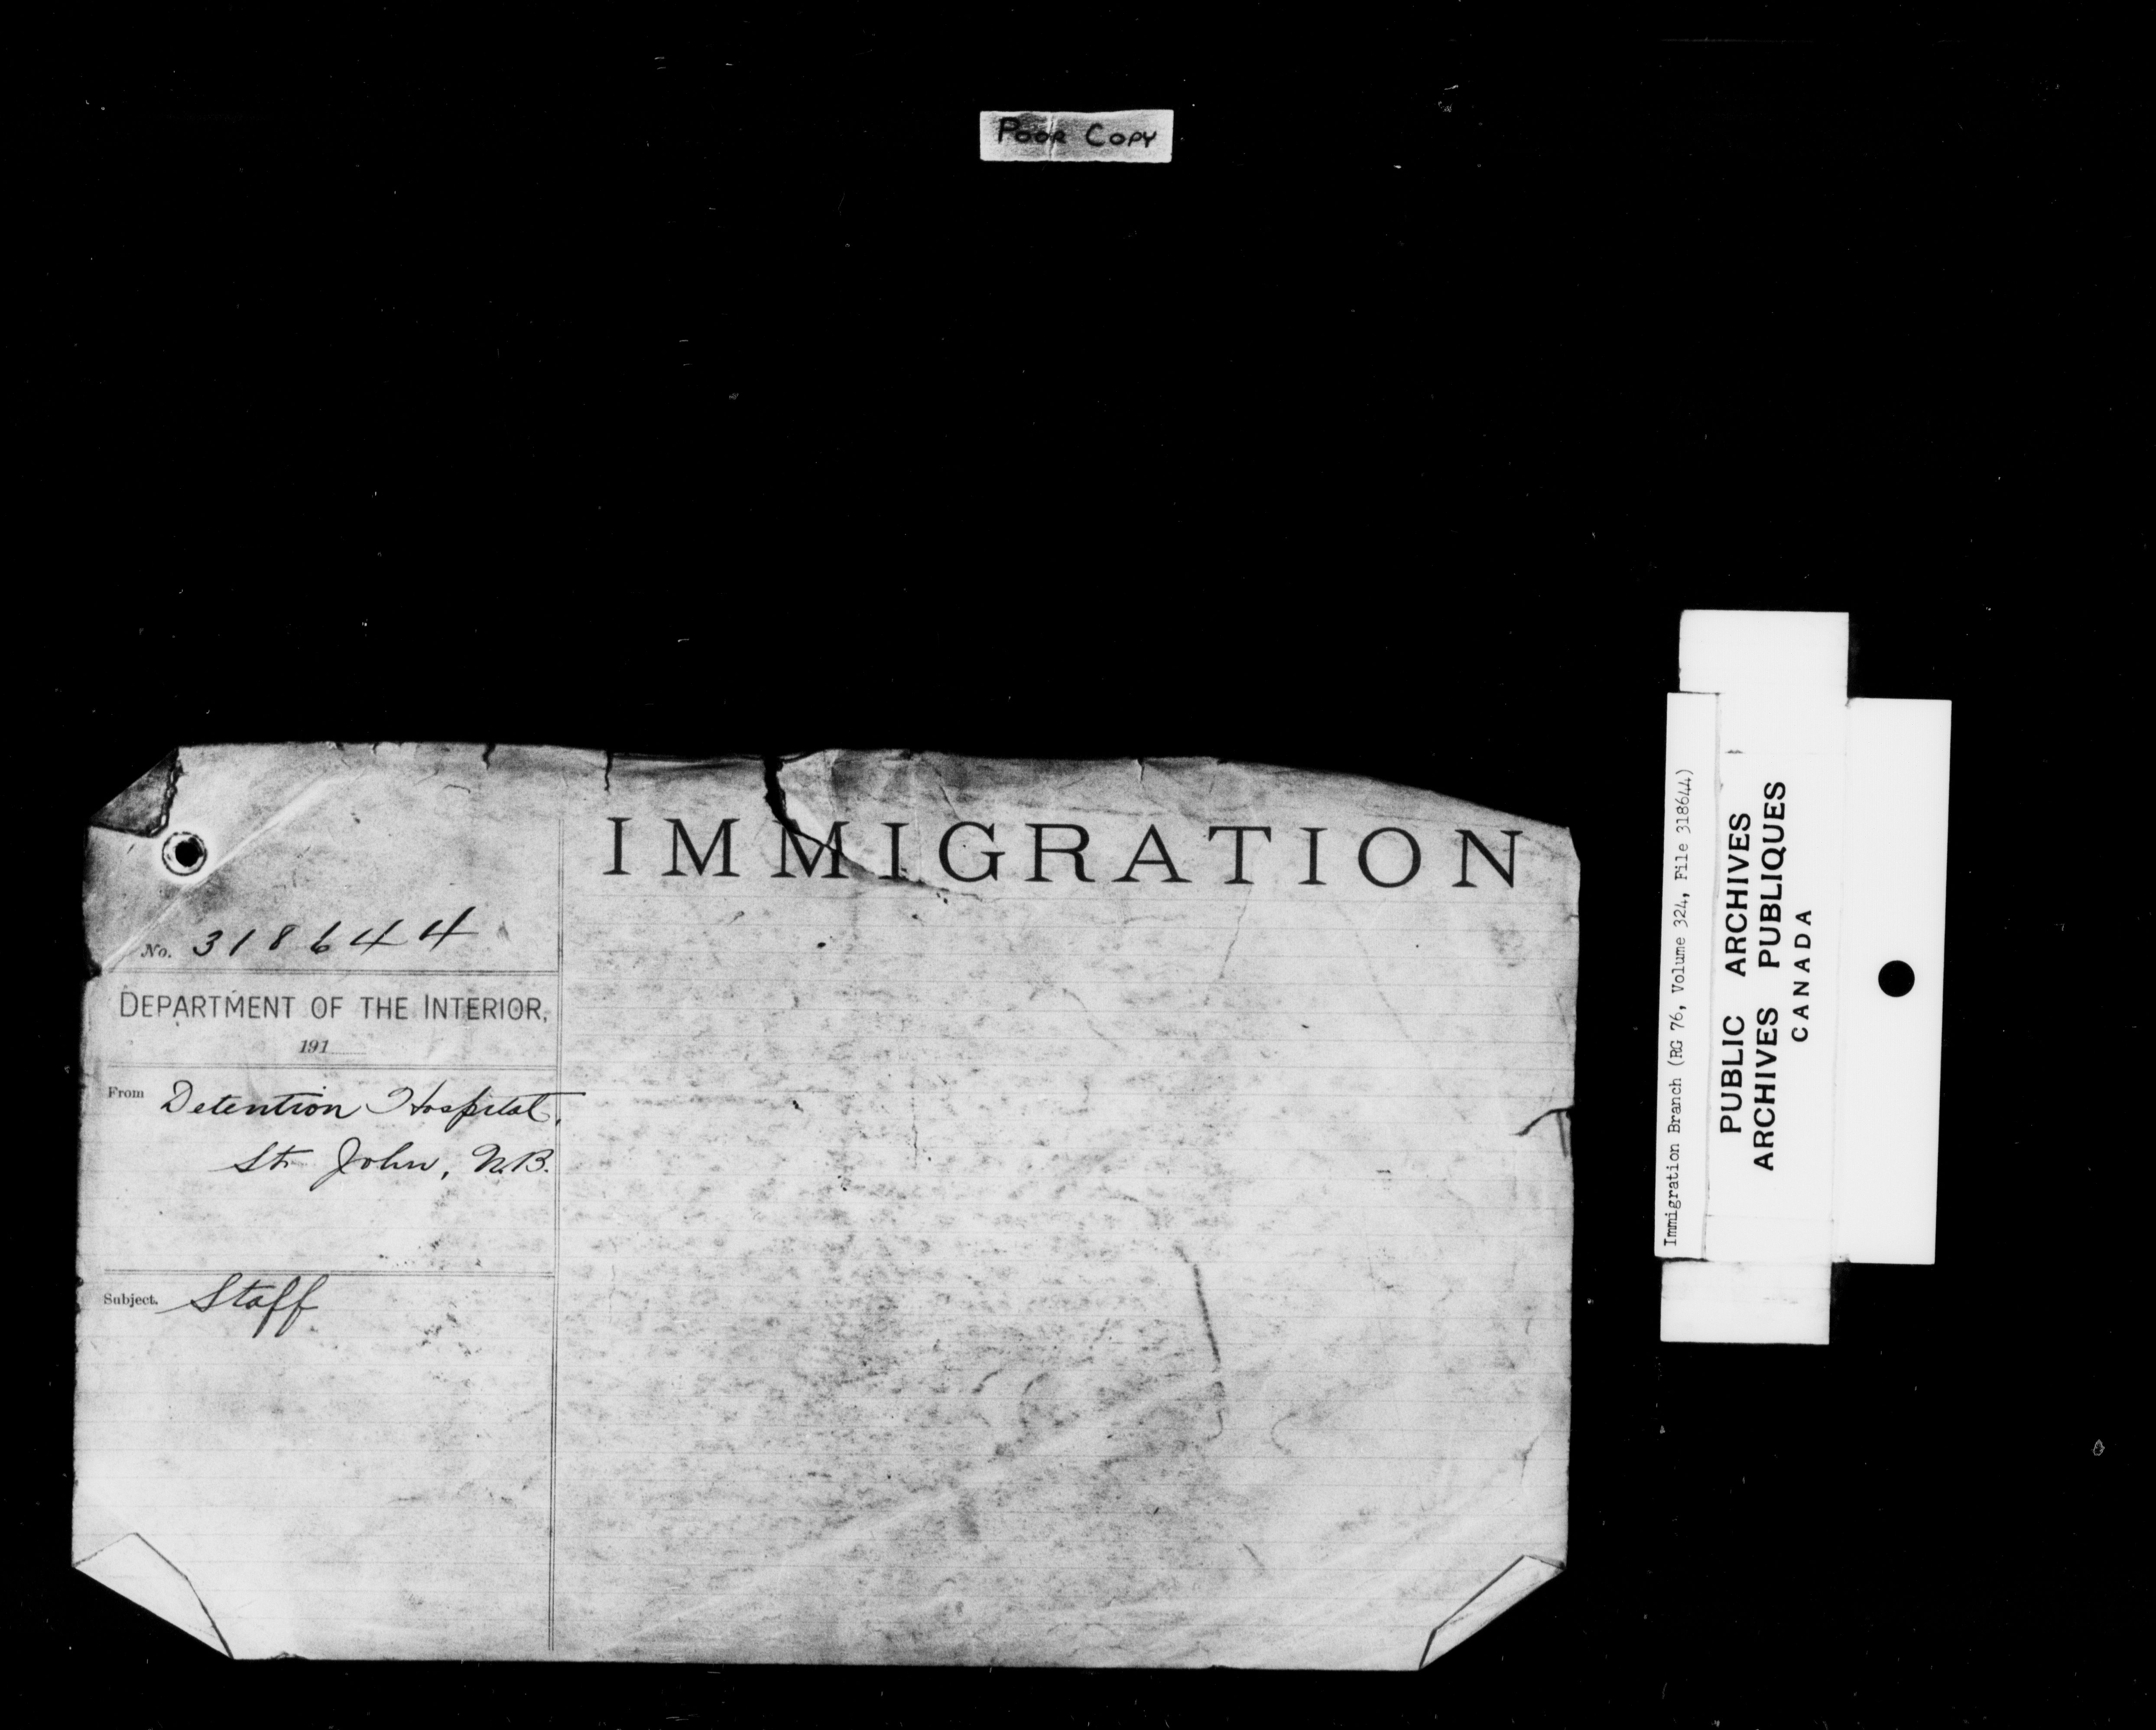 POOR COPY
IMMIGRATION
No. 318644
DEPARTMENT OF THE INTERIOR,
191
From Detention Hospital,
St. John, N.B.
Subject. Staff
Immigration Branch (RG 76, Volume 324, File 318644)
PUBLIC ARCHIVES
ARCHIVES PUBLIQUES
CANADA